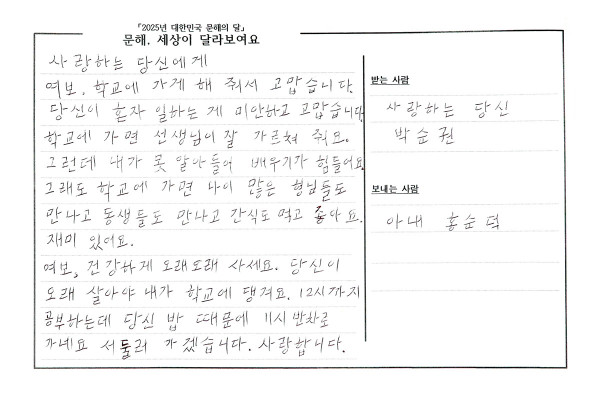 「2025년 대한민국 문해의 달」
문해. 세상이 달라보여요
사랑하는 당신에게
여보, 학교에 가게 해 줘서 고맙습니다.
당신이 혼자 일하는 게 미안하고 고맙습니다
학교에 가면 선생님이 잘 가르쳐 줘요.
그런데 내가 못 알아들어 배우기가 힘들어요.
그래도 학교에 가면 나이 많은 형님들도
만나고 동생들도 만나고 간식도 먹고 좋아요.
재미 있어요.
여보, 건강하게 오래오래 사세요. 당신이
오래 살아야 내가 학교에 댕겨요. 12시까지
공부하는데 당신 밥 때문에 11시 반차로
가네요 서둘러 가겠습니다. 사랑합니다.
받는 사람
사랑하는 당신
박순권
보내는 사람
아내 홍순덕